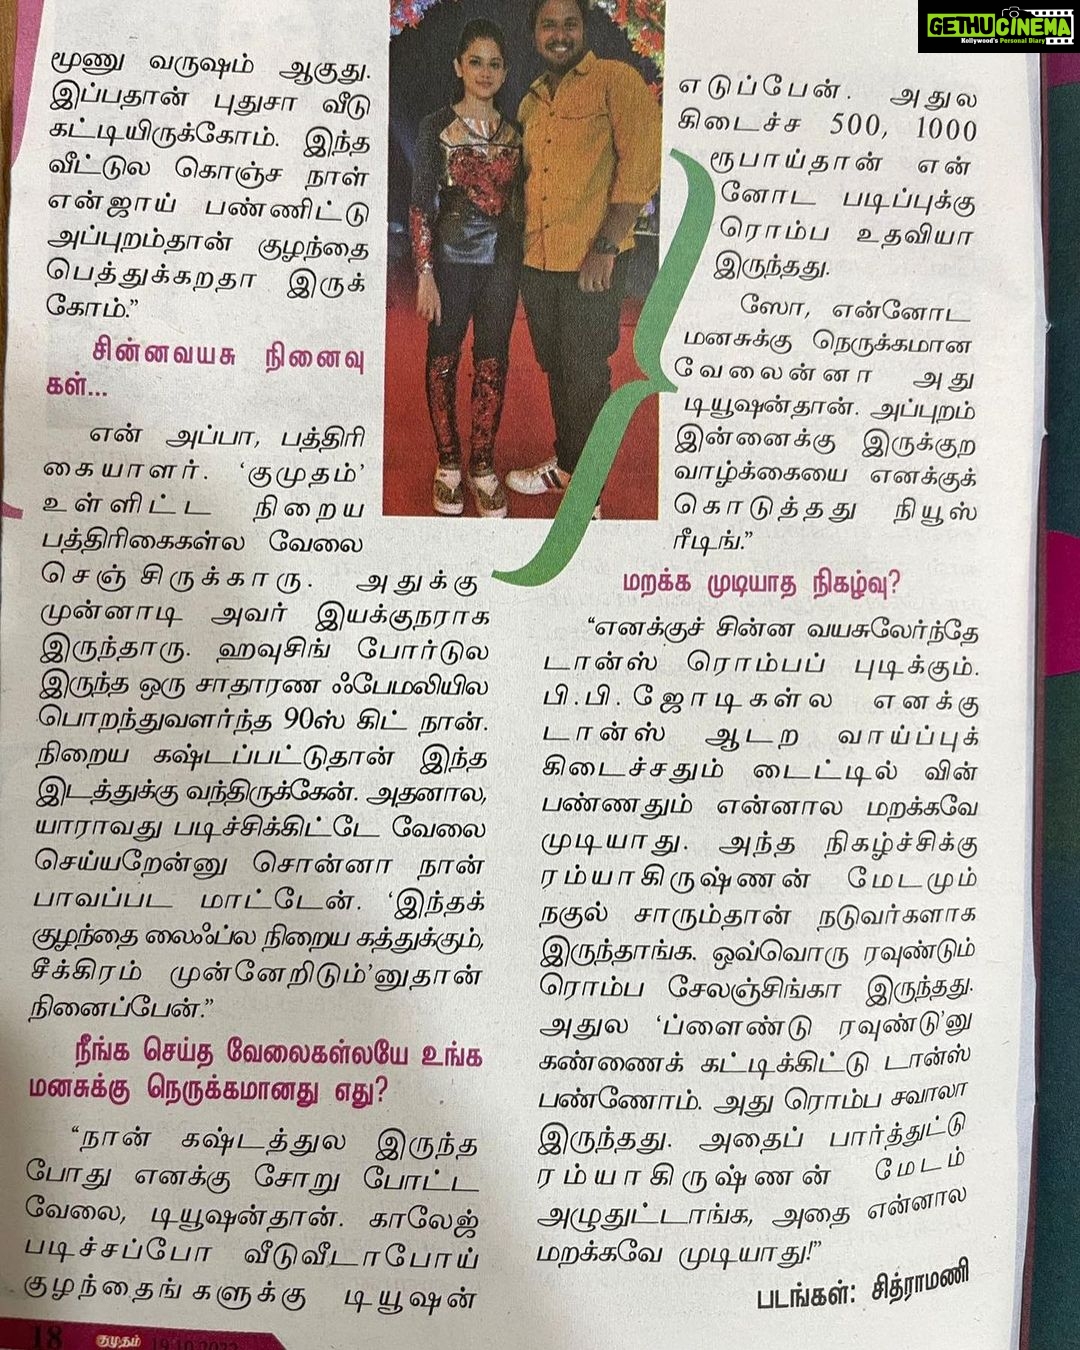 GETHUCINEMA
Kollywood's Personal Diary
மூணு வருஷம் ஆகுது.
இப்பதான் புதுசா வீடு
கட்டியிருக்கோம். இந்த
வீட்டுல கொஞ்ச நாள்
என்ஜாய் பண்ணிட்டு
அப்புறம்தான் குழந்தை
பெத்துக்கறதா இருக்
கோம்.”
சின்னவயசு நினைவு
கள்...
என் அப்பா, பத்திரி
கையாளர். ‘குமுதம்’
உள்ளிட்ட நிறைய
பத்திரிகைகள்ல வேலை
செஞ்சிருக்காரு. அதுக்கு
முன்னாடி அவர் இயக்குநராக
இருந்தாரு. ஹவுசிங் போர்டுல
இருந்த ஒரு சாதாரண ஃபேமலியில
பொறந்துவளர்ந்த 90ஸ் கிட் நான்.
நிறைய கஷ்டப்பட்டுதான் இந்த
இடத்துக்கு வந்திருக்கேன். அதனால,
யாராவது படிச்சிக்கிட்டே வேலை
செய்யறேன்னு சொன்னா நான்
பாவப்பட மாட்டேன். ‘இந்தக்
குழந்தை லைஃப்ல நிறைய கத்துக்கும்,
சீக்கிரம் முன்னேறிடும்’னுதான்
நினைப்பேன்.”
நீங்க செய்த வேலைகள்லயே உங்க
மனசுக்கு நெருக்கமானது எது?
“நான் கஷ்டத்துல இருந்த
போது எனக்கு சோறு போட்ட
வேலை, டியூஷன்தான். காலேஜ்
படிச்சப்போ வீடுவீடாபோய்
குழந்தைங்களுக்கு டியூஷன்
எடுப்பேன். அதுல
கிடைச்ச 500, 1000
ரூபாய்தான் என்
னோட படிப்புக்கு
ரொம்ப உதவியா
இருந்தது.
ஸோ, என்னோட
மனசுக்கு நெருக்கமான
வேலைன்னா அது
டியூஷன்தான். அப்புறம்
இன்னைக்கு இருக்குற
வாழ்க்கையை எனக்குக்
கொடுத்தது நியூஸ்
ரீடிங்.”
மறக்க முடியாத நிகழ்வு?
“எனக்குச் சின்ன வயசுலேர்ந்தே
டான்ஸ் ரொம்பப் புடிக்கும்.
பி.பி.ஜோடிகள்ல எனக்கு
டான்ஸ் ஆடற வாய்ப்புக்
கிடைச்சதும் டைட்டில் வின்
பண்ணதும் என்னால மறக்கவே
முடியாது. அந்த நிகழ்ச்சிக்கு
ரம்யாகிருஷ்ணன் மேடமும்
நகுல் சாரும்தான் நடுவர்களாக
இருந்தாங்க. ஒவ்வொரு ரவுண்டும்
ரொம்ப சேலஞ்சிங்கா இருந்தது.
அதுல ‘ப்ளைண்டு ரவுண்டு’னு
கண்ணைக் கட்டிக்கிட்டு டான்ஸ்
பண்ணோம். அது ரொம்ப சவாலா
இருந்தது. அதைப் பார்த்துட்டு
ரம்யாகிருஷ்ணன் மேடம்
அழுதுட்டாங்க, அதை என்னால
மறக்கவே முடியாது!”
படங்கள்: சித்ராமணி
18 குமுதம் 19.10.2022